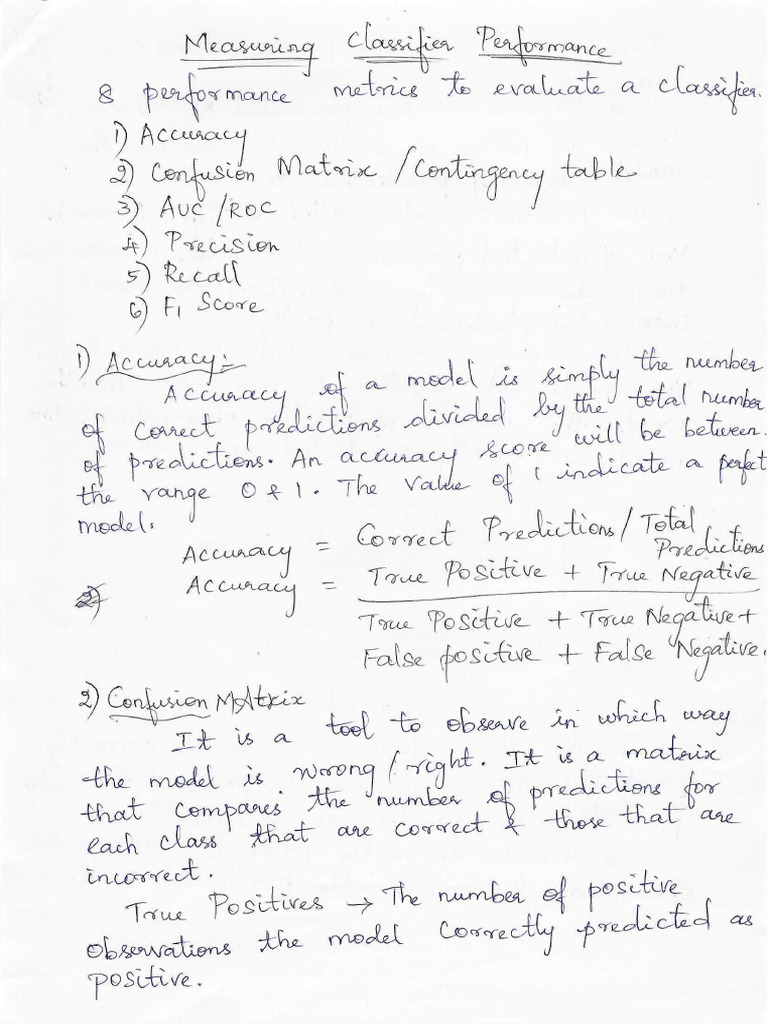 Measuring Classifier Performance
8 performance metrics to evaluate a classifier.
1) Accuracy
2) Confusion Matrix / Contingency table
3) AUC / ROC
4) Precision
5) Recall
6) F1 Score
1) Accuracy :-
Accuracy of a model is simply the number
of correct predictions divided by the total number
of predictions. An accuracy score will be between
the range 0 & 1. The value of 1 indicate a perfect
model.
Accuracy = Correct Predictions / Total Predictions
Accuracy = True Positive + True Negative
2)
True Positive + True Negative +
False positive + False Negative.
2) Confusion MAtrix
It is a tool to observe in which way
the model is wrong / right. It is a matrix
that compares the number of predictions for
each class that are correct & those that are
incorrect.
True Positives → The number of positive
observations the model correctly predicted as
positive.